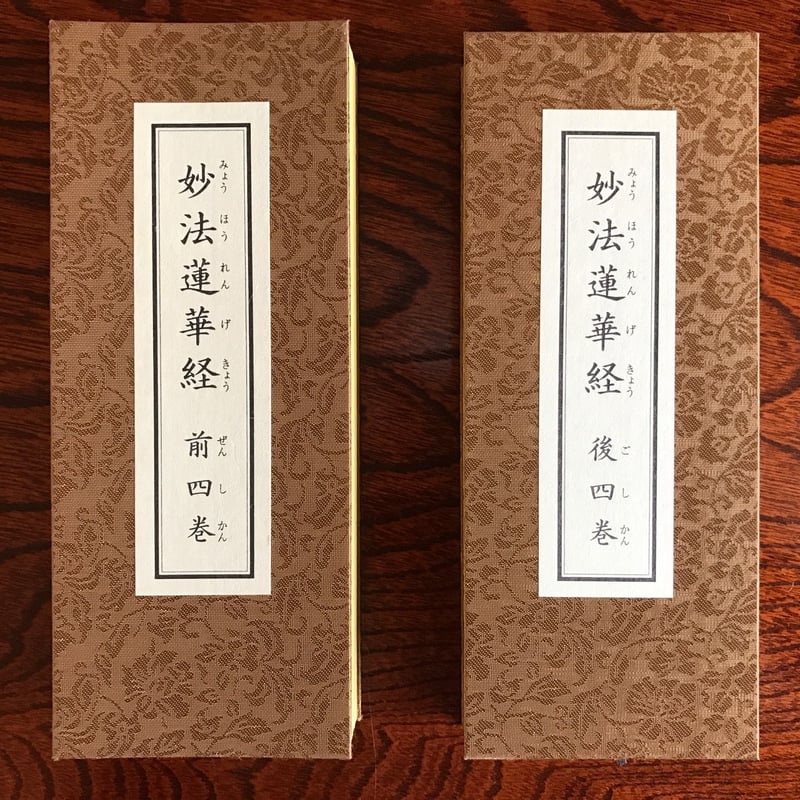 妙法蓮華経 前四巻
みょう ほう れん げ きょう ぜん し かん
妙法蓮華経 後四巻
みょう ほう れん げ きょう ご し かん